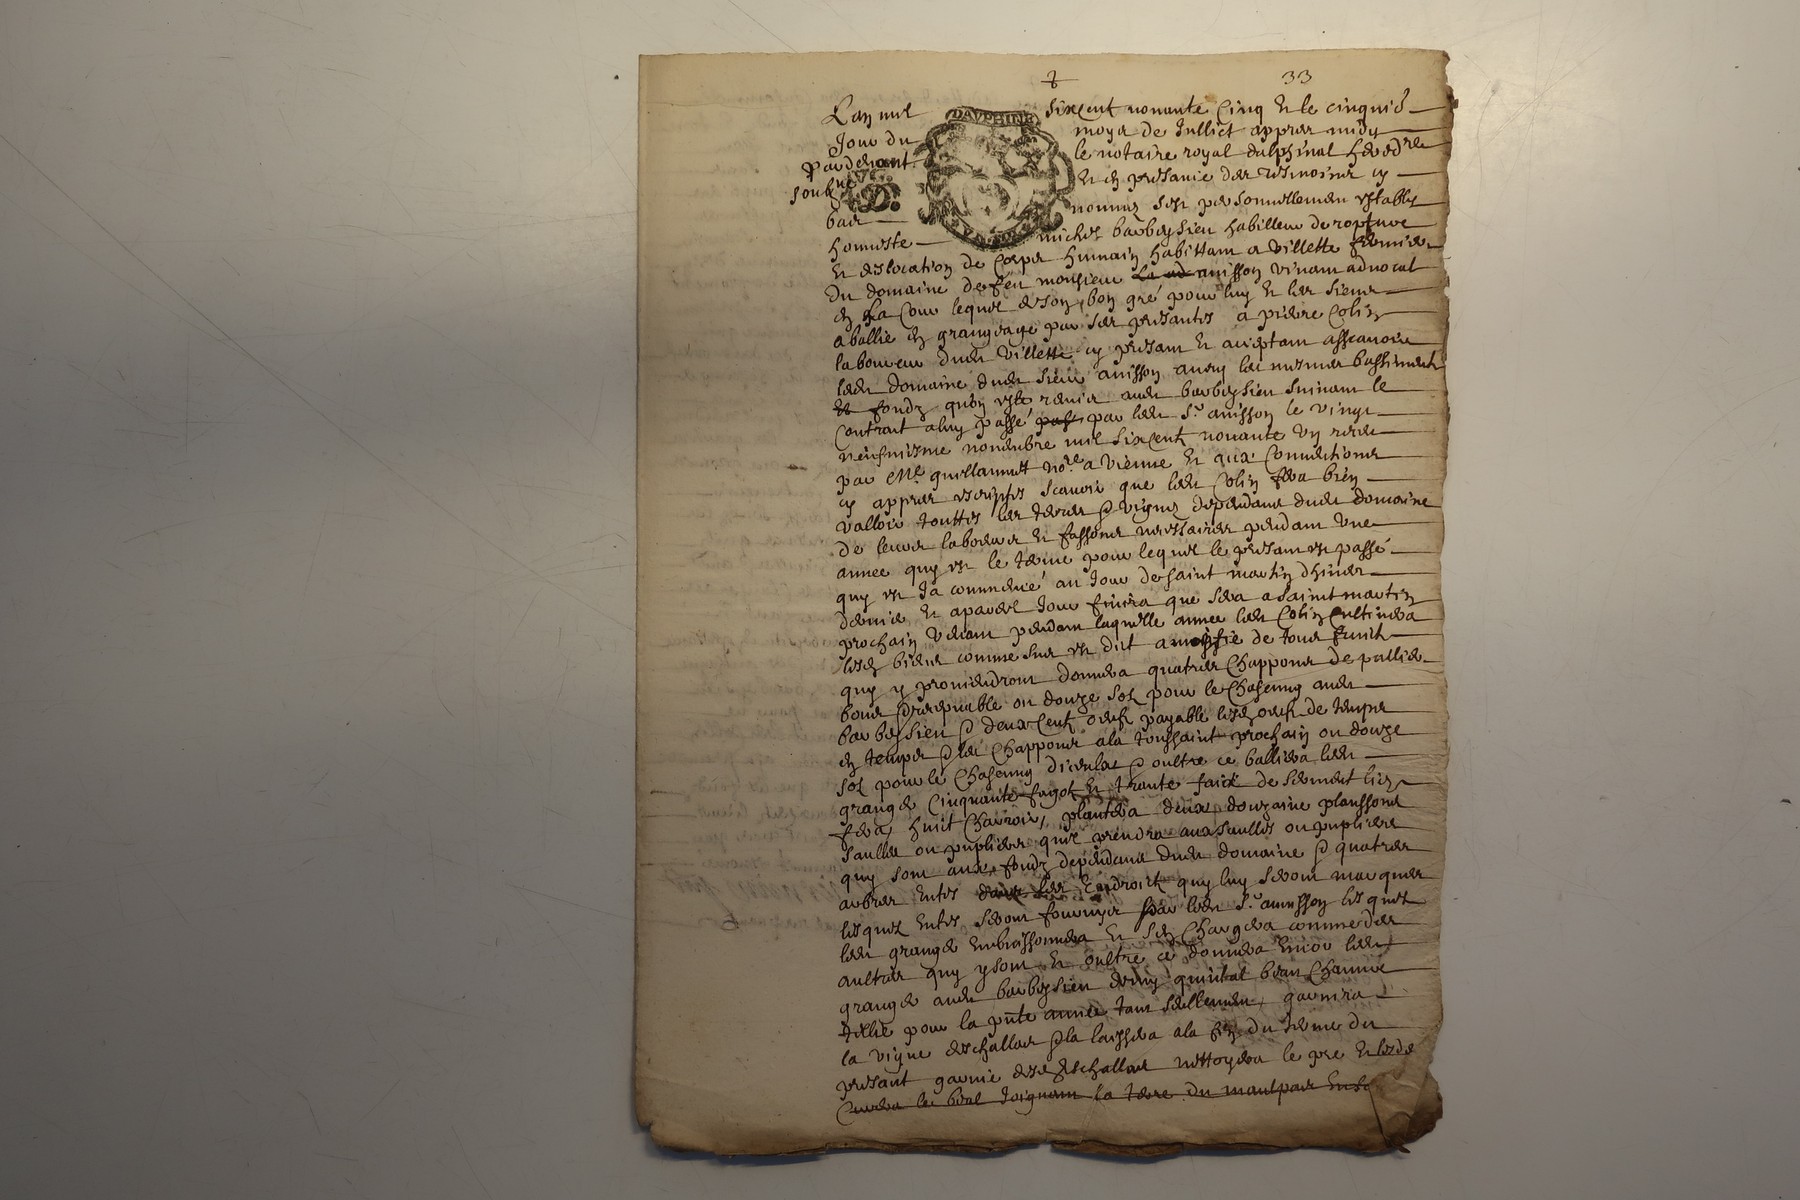 33
L'an mil sixcent nonante cinq et le cinquie
jour du moys de Julliet appres midy
par devant le notaire royal dalphinal hered^re
soub^ne et en presance des tesmoins cy
bas nommes s'est personnellement estably
DAVPHINE
honneste michel barbeysieu habilleur de ropture
et deslocation de corps humain habittant a villette fermier
du domaine de feu monsieur anisson vivant advocat
en la Cour lequel de son bon gré pour luy et les siens
a ballié en grangeage par ses presantes a pierre Colin
laboureur dud villette cy presant et aceptant asscavoir
led domaine dud sieur anisson avec les mesmes bastiments
et fondz qu'en este remis aud barbeysieu suivant le
contrait a luy passé par led s^r anisson le vingt
neufviesme novembre mil sixcent nonante un receu
par M^e guillaumet no^re a vienne et aux conditions
cy appres escriptes scavoir que led Colin fera bien
valloir touttes les terres & vignes dependant dud domaine
de leurs labeurs et fassons necessaires pendant une
annee quy est le terme pour lequel le presant est passé
quy est ja commencé au jour de saint martin dhiver
dernier et a pareil jour finira que sera a saint martin
prochain venant pendant laquelle annee led Colin cultivera
lesd biens comme sus est dit a moytie de tous fruits
quy y proviendront donnera quatres chappons de pallier
bons & receptable ou douze sols pour le chascung aud
barbeysieu & deux cent oeufs payable lesd oeufs de temps
en temps & les chappons a la toussaint prochain ou douze
sols pour le chascung diceulx & oultre ce balliera led
granger cinquante fagots et trante faix de serment liez
fera huit charrois, plantera deux douzaine planssons
saulles ou pupliers quil prendra aux saulles ou pupliers
quy sont aux fondz dependant dud domaine & quatres
arbres entes endroits quy luy seront marques
lesquels entes seront fournys par led s^r anisson lesquels
led granger embuissonnera et s'en chargera comme des
aultres quy y sont et oultre ce donnera encor led
granger aud barbeysieu demy quintal beau chanvre
pour la pnte annee tant seullement, garnira
la vigne deschallas & la laissera a la fin du terme du
presant garnie desd eschallas nettoyera le pre et
curera les bial joignant la terre du maulpas